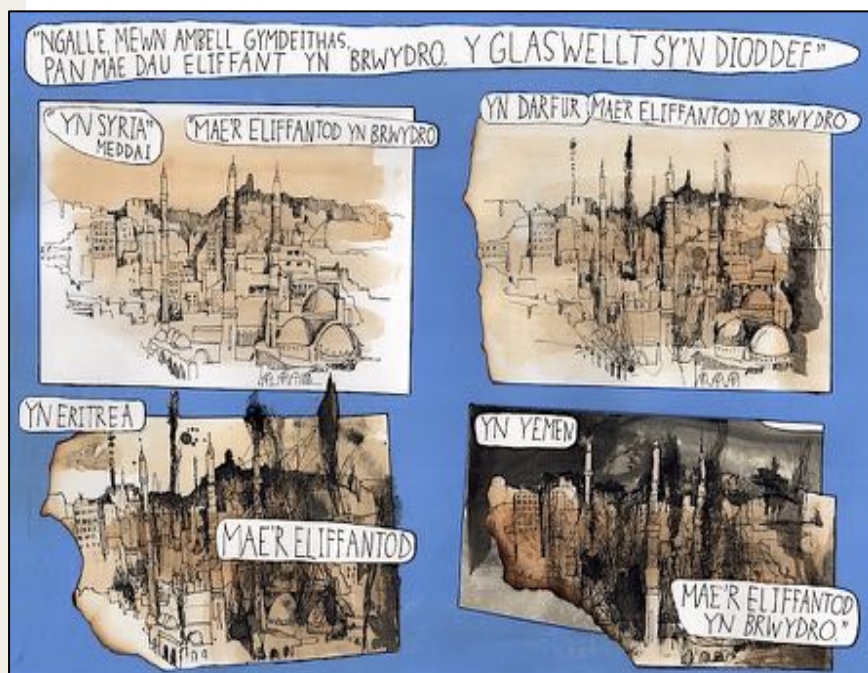 "NGALLE, MEWN AMBELL GYMDEITHAS,
PAN MAE DAU ELIFFANT YN BRWYDRO. Y GLASWELLT SY'N DIODDEF"
"YN SYRIA"
MEDDAI
"MAE'R ELIFFANTOD YN BRWYDRO
YN DARFUR MAE'R ELIFFANTOD YN BRWYDRO
YN ERITREA
MAE'R ELIFFANTOD
YN YEMEN
MAE'R ELIFFANTOD
YN BRWYDRO."